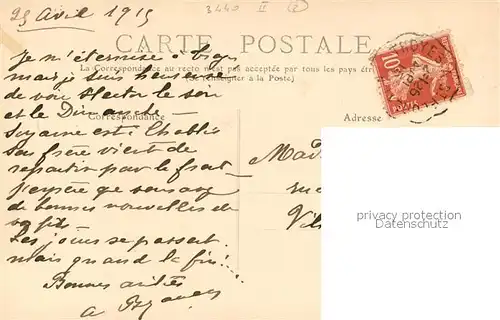 25 avril 1915
3440 II 2
CARTE POSTALE
La Correspondance au recto n'est pas acceptée par tous les pays étr
(Se renseigner à la Poste)
Correspondance
Adresse
Je m'éternise à
mais je suis heureuse
de voir Hector le soir
et le Dimanche —
Suzanne est
son frère vient de
repartir pour le front
j'espère que vous avez
de bonnes nouvelles de
vos fils —
Les jours se passent
mais quand la fin!...
Bonnes amitiés
Mad
Vi
10
privacy protection
Datenschutz